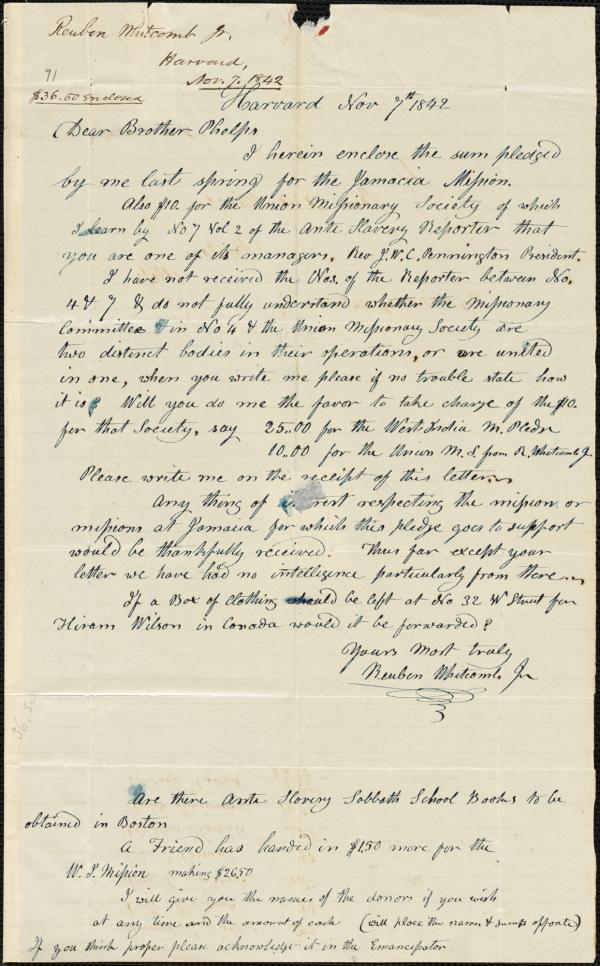 Reuben Whitcomb Jr.
Harvard,
Nov. 7. 1842
91
$36.50 enclosed
Harvard Nov 7th 1842
Dear Brother Phelps
I herein enclose the sum pledged
by me last spring for the Jamacia Mission.
Also $10. for the Union Missionary Society of which
I learn by No 7 Vol 2 of the Ante Slavery Reporter that
you are one of its managers, Rev J. W. C. Pennington President.
I have not received the Nos. of the Reporter between No.
4 & 7 & do not fully understand whether the Missionary
Committee & in No 4 & the Union Missionary Society are
two distinct bodies in their operations, or are united
in one, when you write me please if no trouble state how
it is? Will you do me the favor to take charge of the $10.
for that Society, say 25.00 for the West India M. Pledge
10.00 for the Union M. S. from R. Whitcomb Jr
Please write me on the receipt of this letter
Any thing of interest respecting the mission or
missions at Jamaica for which this pledge goes to support
would be thankfully received. Thus far except your
letter we have had no intelligence particularly from there
If a Box of Clothing should be left at No 32 W Street for
Hiram Wilson in Canada would it be forwarded?
Yours Most truly
Reuben Whitcomb Jr
36.50
Are there Ante Slavery Sabbath School Books to be
obtained in Boston
A Friend has handed in $1.50 more for the
W. I. Mission making $26.50
I will give you the names of the donors if you wish
at any time and the amount of each (will place the names & sums opposite)
If you think proper please acknowledge it in the Emancipator